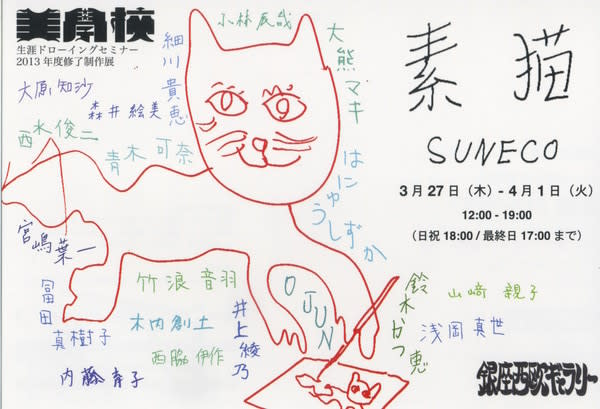 美學校
生涯ドローイングセミナー
2013年度修了制作展
小林辰哉
細川貴恵
大熊マキ
大原知沙
森井絵美
西水俊二
青木可奈
はにゅうしずか
宮嶋葉一
冨田真樹子
竹浪音羽
木内創土
西脇伊作
内藤育子
井上綾乃
O JUN
鈴木かつ恵
山﨑親子
浅岡真世
素描
SUNECO
3月27日（木）- 4月1日（火）
12:00 - 19:00
（日祝 18:00 / 最終日 17:00 まで）
銀座西欧ギャラリー